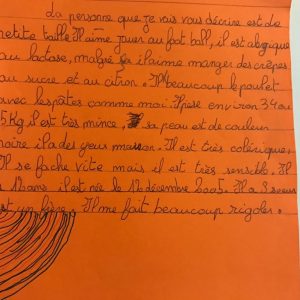 La personne que je vais vous décrire est de
petite taille. Il aime jouer au foot ball, il est alergique
au lactose, malgré sa il aime manger des crêpes
au sucre et au citron. Il beaucoup le poulet
avec les pâtes comme moi. Il pèse environ 34 ou
5 Kg il est très mince, sa peau est de couleur
noire il a des yeux marron. Il est très colérique,
Il se fache vite mais il est très sensible. Il
12 ans il est né le 12 décembre 2005. Il a 3 soeurs
et un frère. Il me fait beaucoup rigoler.